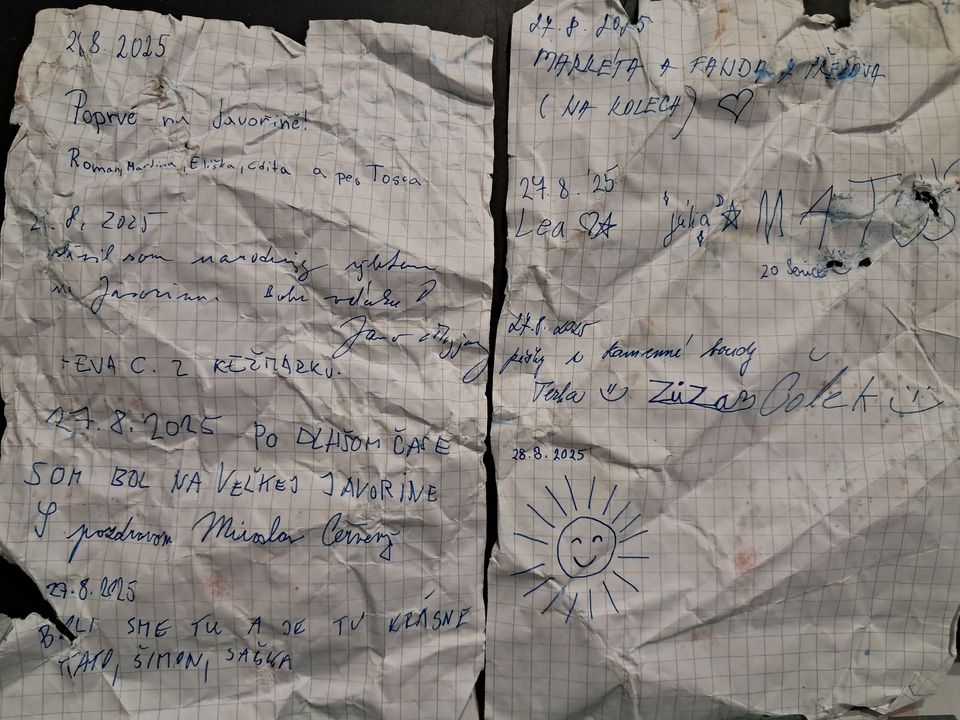 8. 2025
Poprvé na Javorině!
Roman, Martina, Eliška, Edita a pes Tosca
8. 2025
som
na Javorinu.
+ EVA C. Z KEŽMARKU.
27.8.2025 PO DLHŠOM ČASE
SOM BOL NA VEĽKEJ JAVORINE
S pozdravom Miroslav Červený
27.8.2025
BOLI SME TU A JE TU KRÁSNE
ŤAŤO, ŠIMON, SAŠKA
27.8. 2025
MARKÉTA A FANDA Z PŘEROVA
(NA KOLECH)
27.8.'25
Lea júlia MAŤO
20 Senica
27.8.2025
pěšky z Kamenné boudy
Terka ZUZA Čolek
28.8.2025